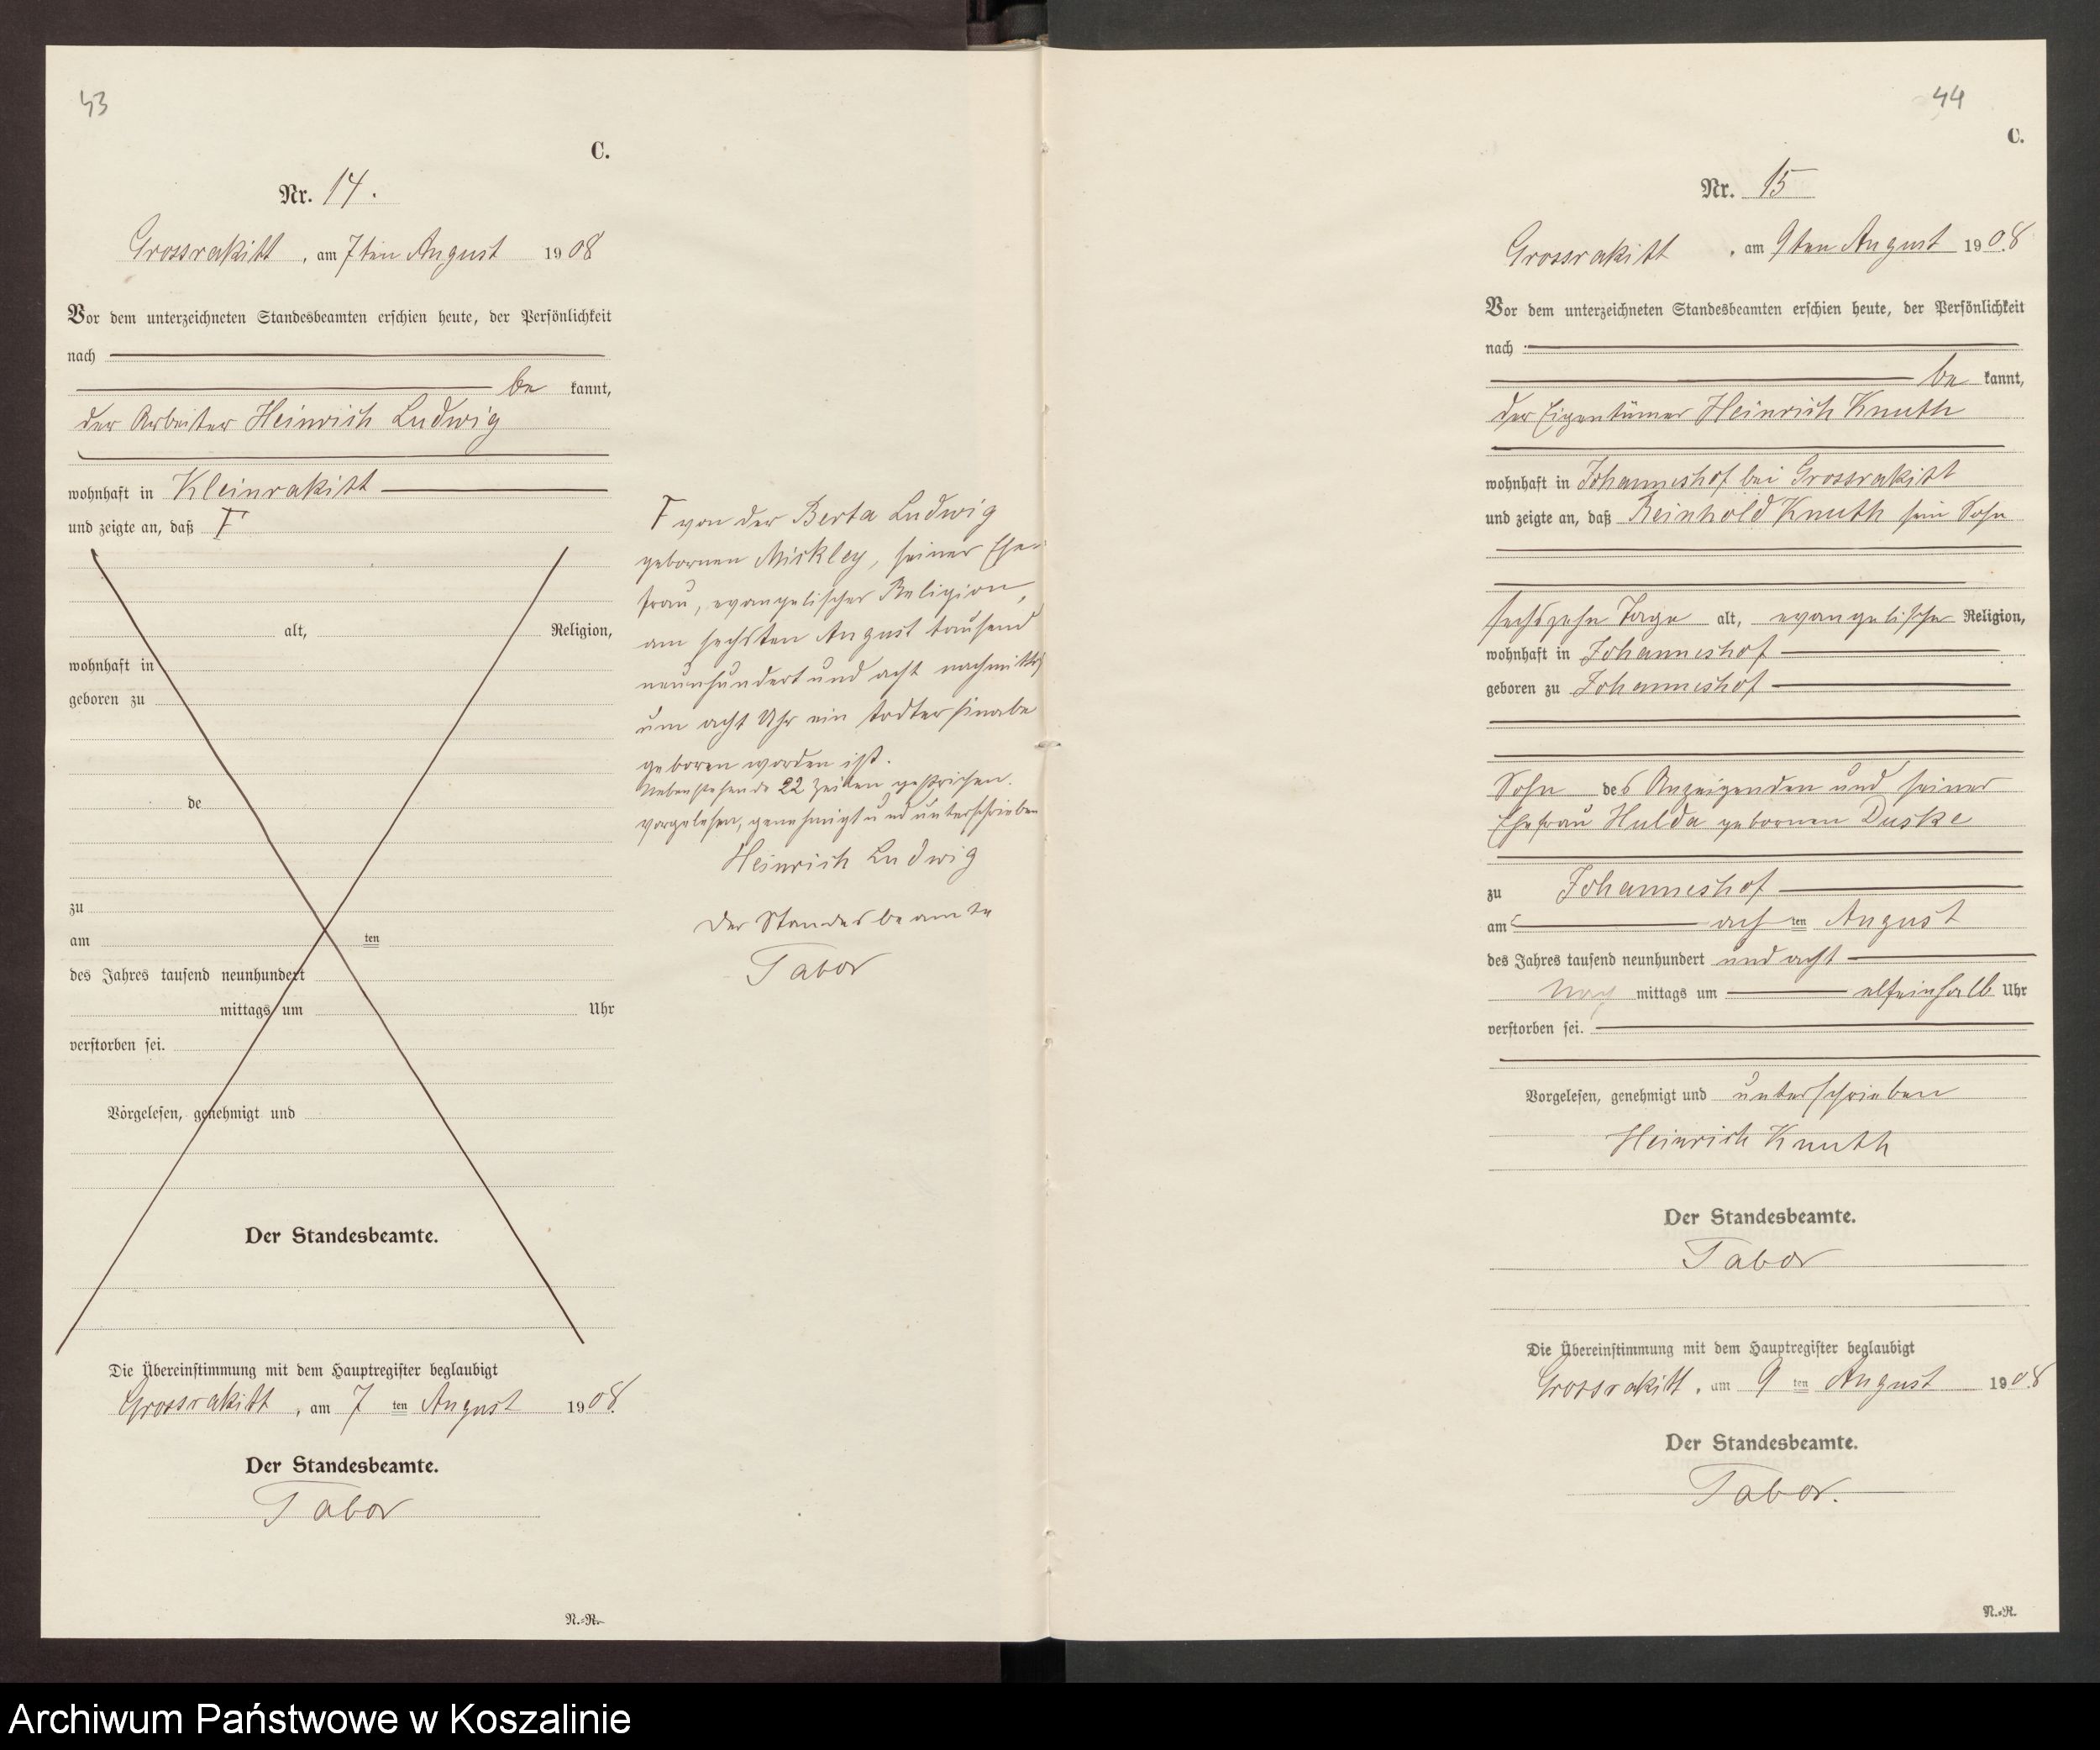 43
C.
Nr. 14.
Grossrakitt, am 7ten August 1908
Vor dem unterzeichneten Standesbeamten erschien heute, der Persönlichkeit
nach
be kannt,
der Arbeiter Heinrich Ludwig
wohnhaft in Kleinrakitt
und zeigte an, daß F
alt, Religion,
wohnhaft in
geboren zu
de
zu
am ten
des Jahres tausend neunhundert
mittags um Uhr
verstorben sei.
Vorgelesen, genehmigt und
Der Standesbeamte.
Die Übereinstimmung mit dem Hauptregister beglaubigt
Grossrakitt, am 7 ten August 1908.
Der Standesbeamte.
Tabor
N.-R.
F von der Berta Ludwig
gebornen Mickley, seiner Ehe-
frau, evangelischer Religion,
am sechsten August tausend
neunhundert und acht nachmittags
um acht Uhr ein todter Knabe
geboren worden ist.
Nebenstehende 22 Zeilen gestrichen.
vorgelesen, genehmigt und unterschrieben
Heinrich Ludwig
Der Standesbeamte
Tabor
44
C.
Nr. 15
Grossrakitt, am 9ten August 1908
Vor dem unterzeichneten Standesbeamten erschien heute, der Persönlichkeit
nach
be kannt,
der Eigentümer Heinrich Knuth
wohnhaft in Johanneshof bei Grossrakitt
und zeigte an, daß Reinhold Knuth sein Sohn
sechszehn Tage alt, evangelische Religion,
wohnhaft in Johanneshof
geboren zu Johanneshof
Sohn des Anzeigenden und seiner
Ehefrau Hulda gebornen Duske
zu Johanneshof
am ach ten August
des Jahres tausend neunhundert und acht
Nach mittags um elfeinhalb Uhr
verstorben sei.
Vorgelesen, genehmigt und unterschrieben
Heinrich Knuth
Der Standesbeamte.
Tabor
Die Übereinstimmung mit dem Hauptregister beglaubigt
Grossrakitt, am 9 ten August 1908
Der Standesbeamte.
Tabor.
N.-R.
Archiwum Państwowe w Koszalinie